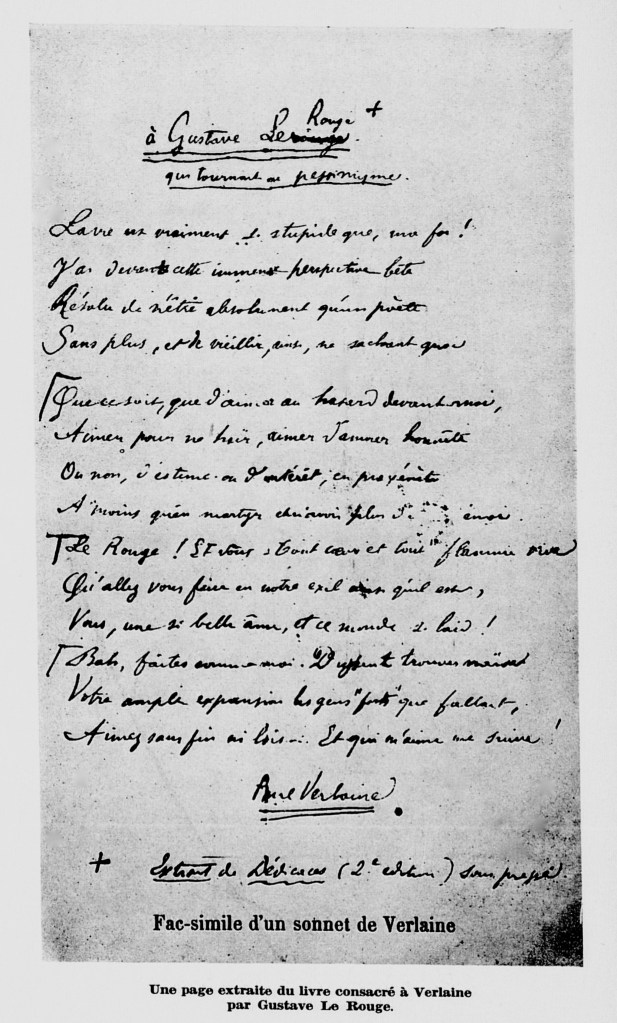 à Gustave Le Rouge +
qui tournait au pessimisme.
La vie est vraiment si stupide que, ma foi !
J'ai devant cette immense perspective bête
Résolu de n'être absolument qu'un poète
Sans plus, et de vieillir, ainsi, ne sachant quoi
Que ce soit, que d'aimer au hasard devant moi,
Aimer pour ne haïr, aimer d'amour honnête
Ou non, d'estime ou d'intérêt, en proxénète
A moins qu'en martyr plus
Le Rouge ! Et vous tout cœur et tout flamme vive
Qu'allez vous faire en notre exil ainsi qu'il est,
Vous, une si belle âme, et ce monde si laid !
Bah, faites comme moi. trouver
Votre ample expansion les gens "forts" que
Aimez sans fin ni lois Et qui m'aime me suive !
Paul Verlaine.
+ Extrait de Dédicaces (2e édition) sous presse
Fac-simile d'un sonnet de Verlaine
Une page extraite du livre consacré à Verlaine
par Gustave Le Rouge.